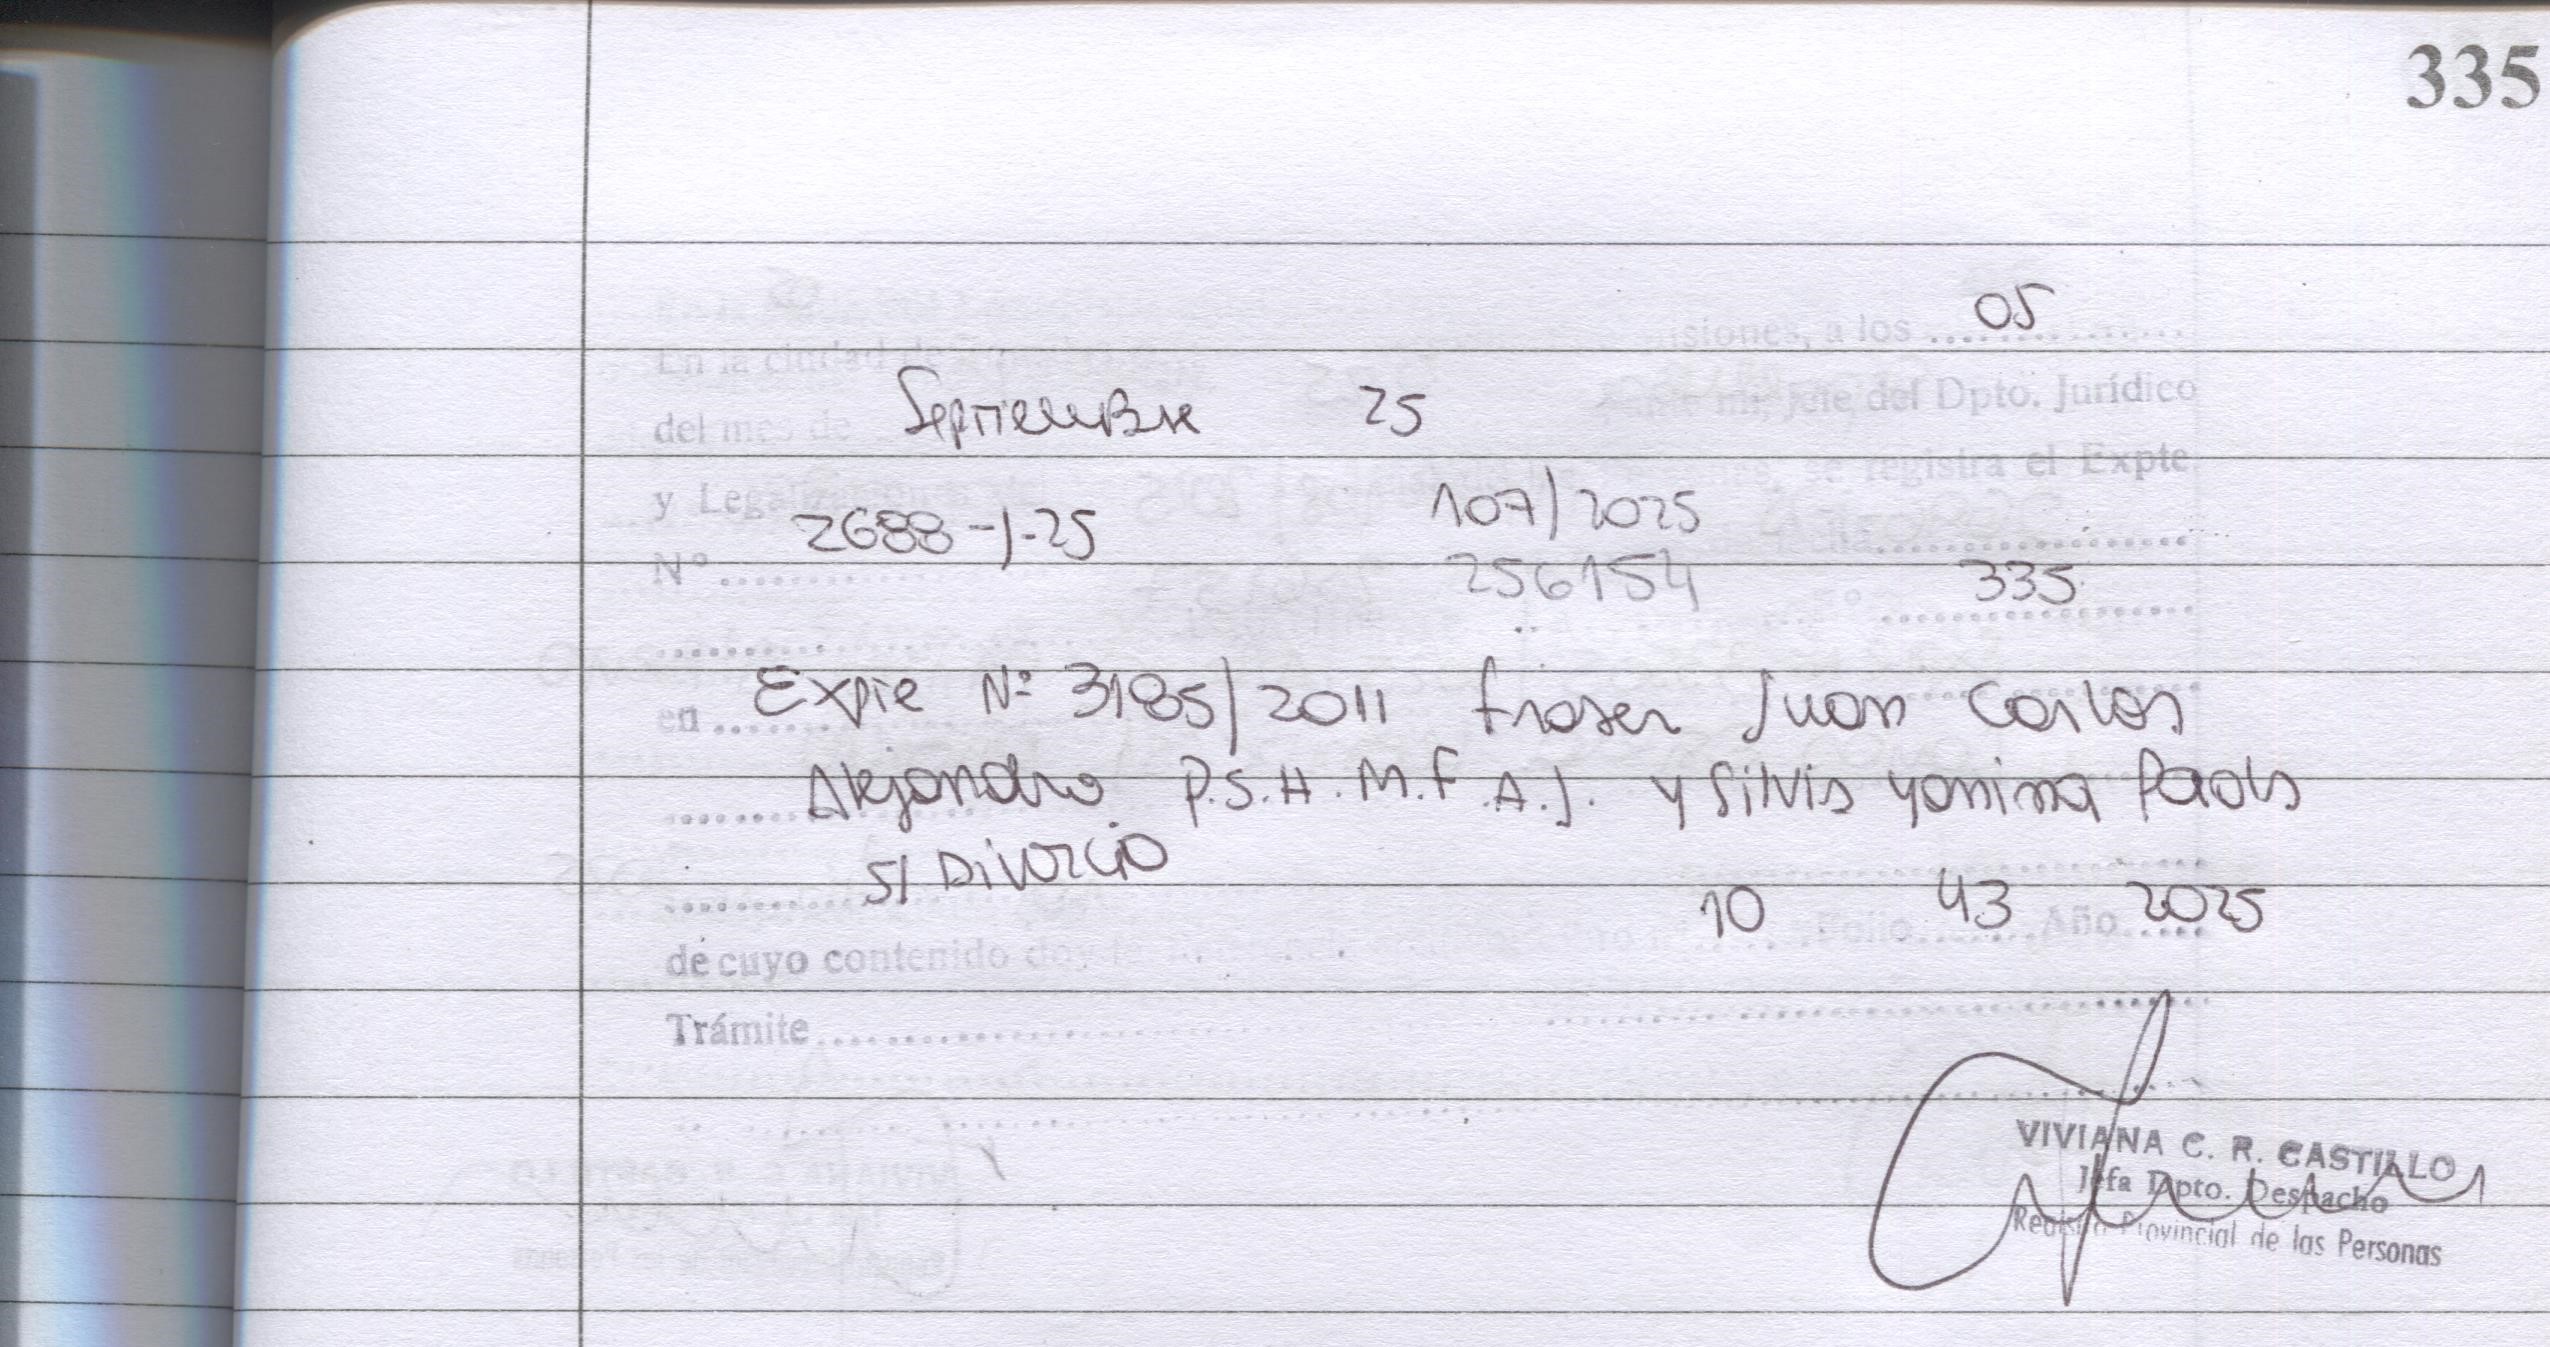 335
En la ciudad de isiones, a los ............... 05
del mes de Septiembre 25 mi, Jefe del Dpto. Jurídico
y Legalizaciones se registra el Expte
Nº 2688-J-25 107/2025
256154 335
en Expte Nº 3185/2011 Fraser Juan Carlos
Alejandro P.S.H.M.F.A.J. y Silvia Yanina Paola
S/ Divorcio
de cuyo contenido doy 10 Folio 43 Año 2025
Trámite
VIVIANA C. R. CASTILLO
Jefa Dpto. Despacho
Registro Provincial de las Personas